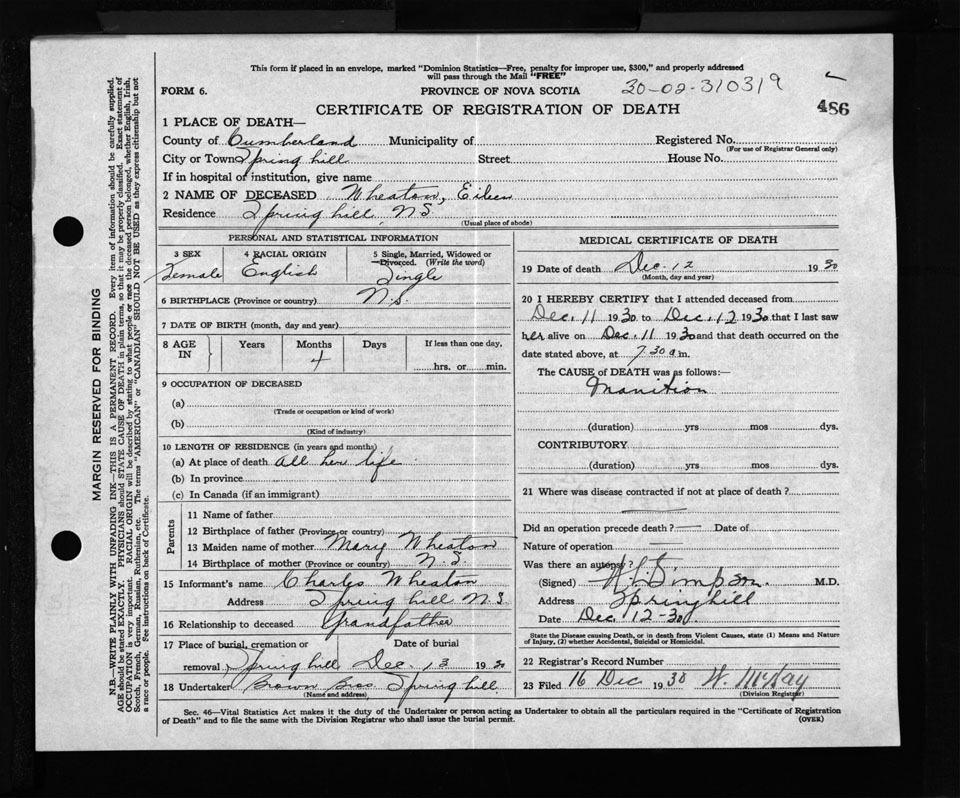 This form if placed in an envelope, marked "Dominion Statistics—Free, penalty for improper use, $300," and properly addressed
will pass through the Mail "FREE"
FORM 6.
PROVINCE OF NOVA SCOTIA
30-02-310319
486
CERTIFICATE OF REGISTRATION OF DEATH
1 PLACE OF DEATH—
County of Cumberland Municipality of Registered No.
(For use of Registrar General only)
City or Town Spring hill Street House No.
If in hospital or institution, give name
2 NAME OF DECEASED Wheaton, Eileen
Residence Spring hill, N.S.
(Usual place of abode)
PERSONAL AND STATISTICAL INFORMATION
3 SEX
Female
4 RACIAL ORIGIN
English
5 Single, Married, Widowed or
Divorced. (Write the word)
Single
6 BIRTHPLACE (Province or country) N.S.
7 DATE OF BIRTH (month, day and year)
8 AGE IN Years Months Days If less than one day,
4
hrs. or min.
9 OCCUPATION OF DECEASED
(a)
(Trade or occupation or kind of work)
(b)
(Kind of industry)
10 LENGTH OF RESIDENCE (in years and months)
(a) At place of death all her life
(b) In province
(c) In Canada (if an immigrant)
Parents
11 Name of father
12 Birthplace of father (Province or country)
13 Maiden name of mother Mary Wheaton
14 Birthplace of mother (Province or country) N.S.
15 Informant's name Charles Wheaton
Address Spring hill N.S.
16 Relationship to deceased Grandfather
17 Place of burial, cremation or Date of burial
removal Spring hill Dec. 13 1930
18 Undertaker Brown Bros. Spring hill
(Name and address)
MEDICAL CERTIFICATE OF DEATH
19 Date of death Dec. 12 1930
(Month, day and year)
20 I HEREBY CERTIFY that I attended deceased from
Dec. 11 1930 to Dec. 12 1930 that I last saw
her alive on Dec. 11 1930 and that death occurred on the
date stated above, at 7.30 a m.
The CAUSE of DEATH was as follows:—
Inanition
(duration) yrs mos dys.
CONTRIBUTORY
(duration) yrs mos dys.
21 Where was disease contracted if not at place of death?
Did an operation precede death? — Date of
Nature of operation
Was there an autopsy?
(Signed) Simpson M.D.
Address Springhill
Date Dec 12-30
State the Disease causing Death, or in death from Violent Causes, state (1) Means and Nature
of Injury, (2) whether Accidental, Suicidal or Homicidal.
22 Registrar's Record Number
23 Filed 16 Dec 1930 W. McKay
(Division Registrar)
Sec. 46—Vital Statistics Act makes it the duty of the Undertaker or person acting as Undertaker to obtain all the particulars required in the "Certificate of Registration
of Death" and to file the same with the Division Registrar who shall issue the burial permit.
(OVER)
MARGIN RESERVED FOR BINDING
N.B.—WRITE PLAINLY WITH UNFADING INK—THIS IS A PERMANENT RECORD. Every item of information should be carefully supplied.
AGE should be stated EXACTLY. PHYSICIANS should STATE CAUSE OF DEATH in plain terms, so that it may be properly classified. Exact statement of
OCCUPATION is very important. RACIAL ORIGIN will be described by stating to what people or race the deceased person belonged, whether English, Irish,
Scotch, French, German, Russian, Ruthenian, etc. The terms "AMERICAN" or "CANADIAN" SHOULD NOT BE USED as they express citizenship but not
a race or people. See instructions on back of Certificate.